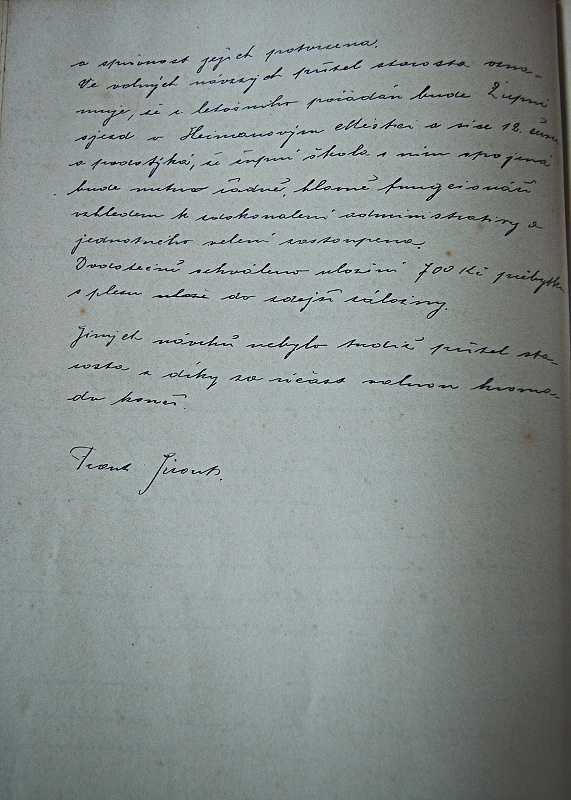 a správnost jejich potvrzena.
Ve volných návrzích přítel starosta ozna-
muje, že i letošního pořádán bude Župní
sjezd v Heřmanovým Městci a sice 12. července
a podotýká, že župní škola s ním spojená
bude nutno řádně, hlavně funkcionáři
vzhledem k zdokonalení administrativy a
jednotného velení zastoupena.
Dodatečně schváleno uložiní 700 Kč přebytku
s plesu do zdejší záložny.
Jiných návrhů nebylo tudíž přítel sta-
rosta s díky za účast valnou hroma-
du končí.
Frant. Jirout.